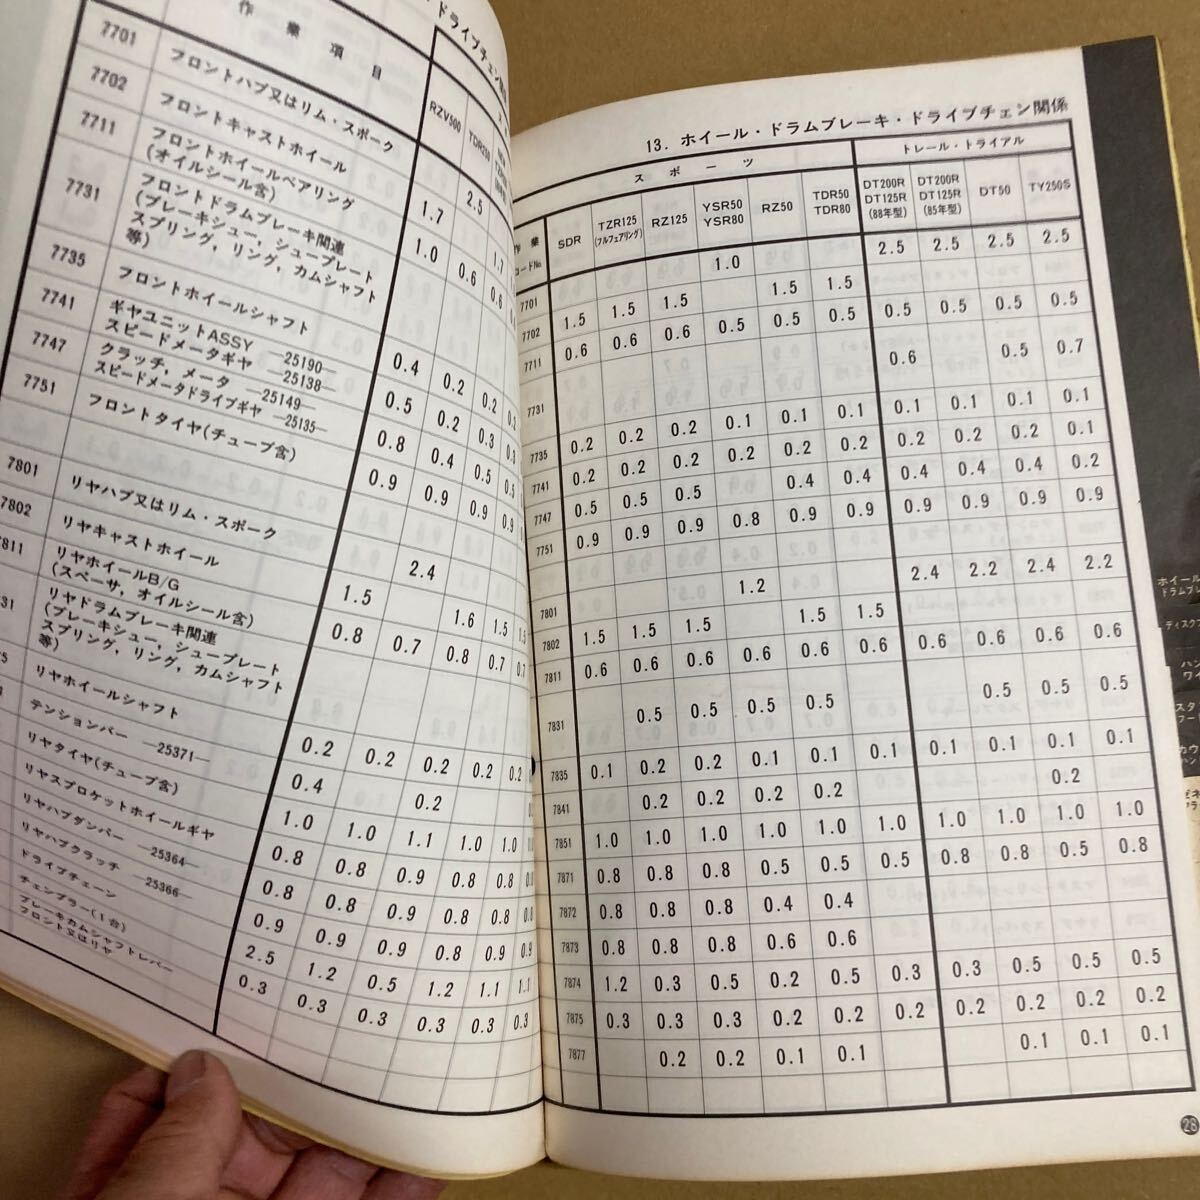 ・ドライブチェン関係
作業項目
RZV500
TDR250
7701
フロントハブ又はリム・スポーク
7702
フロントキャストホイール
1.7
2.5
1.7
7711
フロントホイールベアリング
(オイルシール含)
1.0
0.6
0.6
7731
フロントドラムブレーキ関連
(ブレーキシュー, シュープレート
スプリング, リング, カムシャフト
等)
7735
フロントホイールシャフト
0.4
0.2
0.2
7741
ギヤユニットASSY —25190—
スピードメータギヤ —25138—
0.5
0.2
0.3
7747
クラッチ, メータ —25149—
スピードメータドライブギヤ —25135—
0.8
0.4
0.5
0.5
7751
フロントタイヤ(チューブ含)
0.9
0.9
0.9
0.9
7801
リヤハブ又はリム・スポーク
2.4
7802
リヤキャストホイール
1.5
1.6
1.5
7811
リヤホイールB/G
(スペーサ, オイルシール含)
0.8
0.7
0.8
0.7
リヤドラムブレーキ関連
(ブレーキシュー, シュープレート
スプリング, リング, カムシャフト
等)
リヤホイールシャフト
0.2
0.2
0.2
0.2
0.2
テンションバー —25371—
0.4
0.2
リヤタイヤ(チューブ含)
1.0
1.0
1.1
1.0
1.0
リヤスプロケットホイールギヤ
0.8
0.8
0.9
0.8
0.8
リヤハブダンパー —25364—
0.8
0.8
0.9
0.8
0.8
リヤハブクラッチ —25366—
0.9
0.9
0.9
0.8
0.9
0.9
ドライブチェーン
2.5
1.2
0.5
1.2
1.1
1.1
チェンプラー(1台)
0.3
0.3
0.3
0.3
0.3
0.3
ブレーキカムシャフトレバー
フロント又はリヤ
13. ホイール・ドラムブレーキ・ドライブチェン関係
スポーツ
トレール・トライアル
作業コード№
SDR
TZR125
(フルフェアリング)
RZ125
YSR50
YSR80
RZ50
TDR50
TDR80
DT200R
DT125R
(88年型)
DT200R
DT125R
(85年型)
DT50
TY250S
7701 1.0 2.5 2.5 2.5 2.5
7702 1.5 1.5 1.5 1.5 1.5
7711 0.6 0.6 0.6 0.5 0.5 0.5 0.5 0.5 0.5 0.5
7731 0.6 0.5 0.7
7735 0.2 0.2 0.2 0.1 0.1 0.1 0.1 0.1 0.1 0.1
7741 0.2 0.2 0.2 0.2 0.2 0.2 0.2 0.2 0.2 0.1
7747 0.5 0.5 0.5 0.4 0.4 0.4 0.4 0.4 0.2
7751 0.9 0.9 0.9 0.8 0.9 0.9 0.9 0.9 0.9 0.9
7801 1.2 2.4 2.2 2.4 2.2
7802 1.5 1.5 1.5 1.5 1.5
7811 0.6 0.6 0.6 0.6 0.6 0.6 0.6 0.6 0.6 0.6
7831 0.5 0.5 0.5 0.5 0.5 0.5 0.5
7835 0.1 0.2 0.2 0.1 0.1 0.1 0.1 0.1 0.1 0.1
7841 0.2 0.2 0.2 0.2 0.2
7851 1.0 1.0 1.0 1.0 1.0 1.0 1.0 1.0 1.0 1.0
7871 0.8 0.8 0.8 0.5 0.5 0.5 0.8 0.8 0.5 0.8
7872 0.8 0.8 0.8 0.4 0.4
7873 0.8 0.8 0.8 0.6 0.6
7874 1.2 0.3 0.5 0.2 0.5 0.3 0.3 0.5 0.5 0.5
7875 0.3 0.3 0.3 0.2 0.2 0.2 0.2 0.2 0.2 0.2
7877 0.2 0.2 0.1 0.1 0.1 0.1 0.1
28
ホイール
ドラムブレ